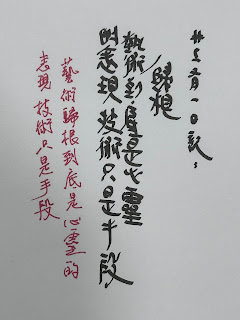 月一日記：
歸根
藝術到底是心靈
的表現 技術只是手段
藝術歸根到底是心靈的
表現 技術只是手段